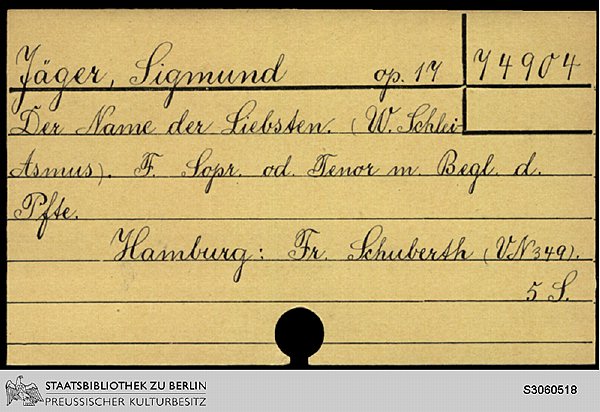 Jäger, Sigmund op. 17 74904
Der Name der Liebsten. (W. Schlei-
Asmus). F. Sopr. od. Tenor m. Begl. d.
Pfte.
Hamburg: Fr. Schuberth (VN 349).
5 S.
STAATSBIBLIOTHEK ZU BERLIN
PREUSSISCHER KULTURBESITZ
S3060518